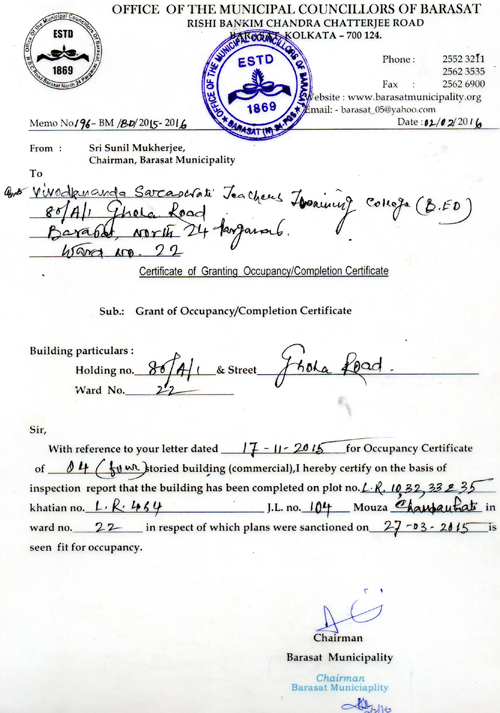 OFFICE OF THE MUNICIPAL COUNCILLORS OF BARASAT
RISHI BANKIM CHANDRA CHATTERJEE ROAD
BARASAT, KOLKATA – 700 124.
ESTD
1869
OFFICE OF THE MUNICIPAL COUNCILLORS OF BARASAT
ESTD
1869
BARASAT (N) 24-PGS
Phone : 2552 3211
2562 3535
Fax : 2562 6900
Website : www.barasatmunicipality.org
Email: - barasat_05@yahoo.com
Memo No 196 – BM /BD/ 2015-2016
Date : 02/02/2016
From : Sri Sunil Mukherjee,
Chairman, Barasat Municipality
To
Vivodkananda Sarcaswati Teachers Training College (B.ED)
80/A/1 Ghola Road
Barasat, North 24 Parganas.
Ward no. 22
Certificate of Granting Occupancy/Completion Certificate
Sub.: Grant of Occupancy/Completion Certificate
Building particulars :
Holding no. 80/A/1 & Street Ghola Road.
Ward No. 22
Sir,
With reference to your letter dated 17-11-2015 for Occupancy Certificate
of 04 (four) storied building (commercial),I hereby certify on the basis of
inspection report that the building has been completed on plot no. L.R. 1032, 33 & 35
khatian no. L.R. 464 J.L. no. 104 Mouza in
ward no. 22 in respect of which plans were sanctioned on 27-03-2015 is
seen fit for occupancy.
Chairman
Barasat Municipality
Chairman
Barasat Municiaplity